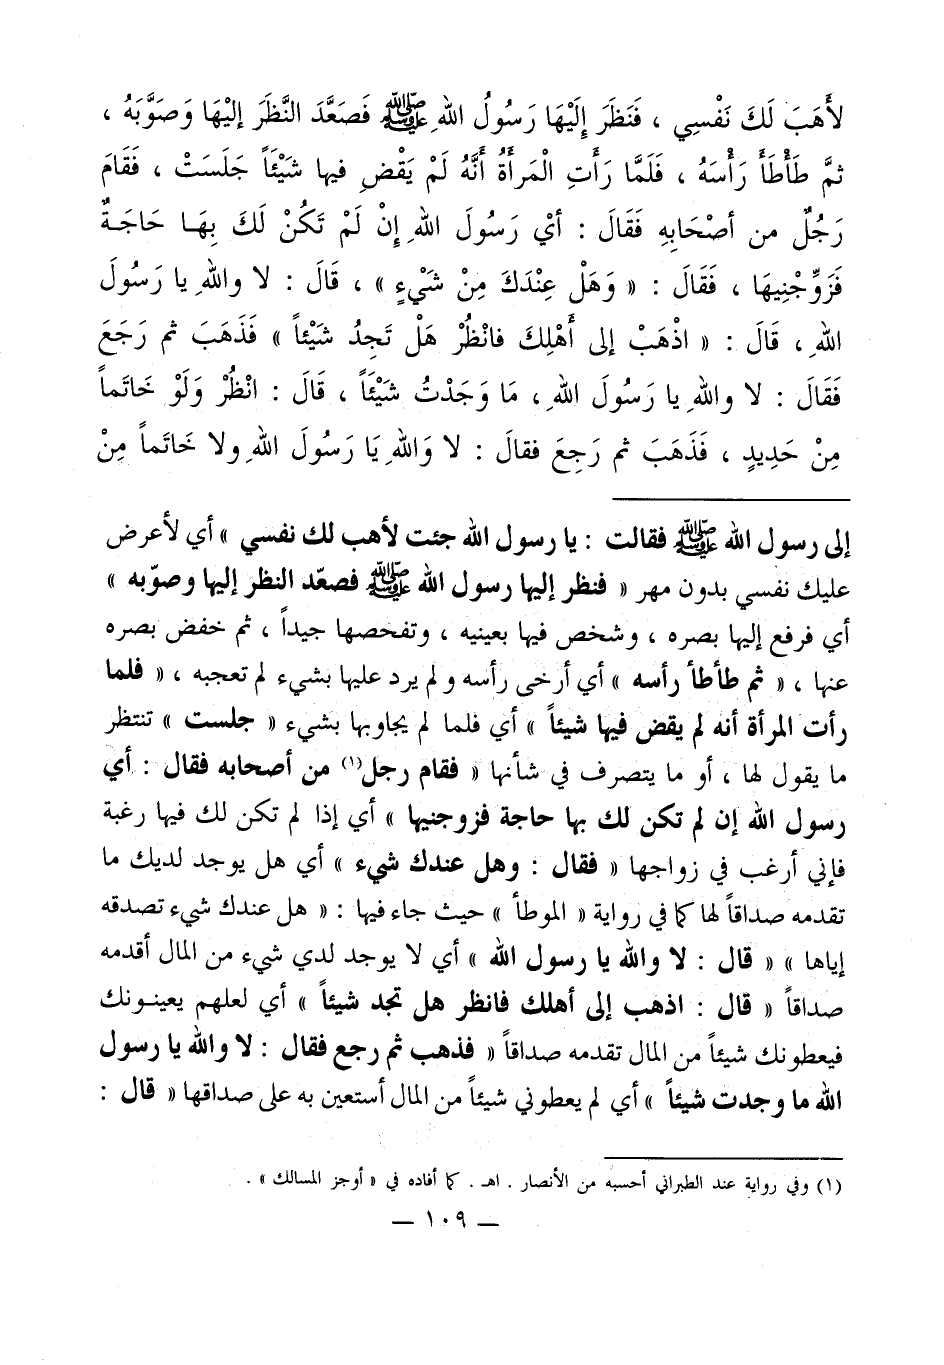 لأَهَبَ لَكَ نَفْسِي ، فَنَظَرَ إِلَيْهَا رَسُولُ اللهِ ﷺ فَصَعَّدَ النَّظَرَ إِلَيْهَا وَصَوَّبَهُ ،
ثمَّ طَأْطَأَ رَأْسَهُ ، فَلَمَّا رَأَتِ الْمَرأَةُ أَنَّهُ لَمْ يَقْضِ فيها شَيْئَاً جَلَسَتْ ، فَقَامَ
رَجُلٌ من أصْحَابِهِ فَقَالَ : أيْ رَسُولَ اللهِ إنْ لَمْ تَكُنْ لَكَ بِهَا حَاجَةٌ
فَزَوِّجْنِيهَا ، فَقَالَ : « وَهَلْ عِنْدَكَ مِنْ شَيْءٍ » ، قَالَ : لا واللهِ يا رَسُولَ
اللهِ ، قَالَ : « اذْهَبْ إلى أَهْلِكَ فانْظُرْ هَلْ تَجِدُ شَيْئاً » فَذَهَبَ ثم رَجَعَ
فَقَالَ : لا واللهِ يا رَسُولَ اللهِ ، مَا وَجَدْتُ شَيْئَاً ، قَالَ : انْظُرْ وَلَوْ خَاتَماً
مِنْ حَدِيدٍ ، فَذَهَبَ ثم رَجِعَ فقالَ : لا وَاللهِ يَا رَسُولَ اللهِ ولا خَاتَماً مِنْ
إلى رسول الله ﷺ فقالت : يا رسول الله جئت لأهب لك نفسي » أي لأعرض
عليك نفسي بدون مهر « فنظر إليها رسول الله ﷺ فصعّد النظر إليها وصوّبه »
أي فرفع إليها بصره ، وشخص فيها بعينيه ، وتفحصها جيداً ، ثم خفض بصره
عنها ، « ثم طأطأ رأسه » أي أرخى رأسه ولم يرد عليها بشيء لم تعجبه ، « فلما
رأت المرأة أنه لم يقض فيها شيئاً » أي فلما لم يجاوبها بشيء « جلست » تنتظر
ما يقول لها ، أو ما يتصرف في شأنها « فقام رجل(١) من أصحابه فقال : أي
رسول الله إن لم تكن لك بها حاجة فزوجنيها » أي إذا لم تكن لك فيها رغبة
فإني أرغب في زواجها « فقال : وهل عندك شيء » أي هل يوجد لديك ما
تقدمه صداقاً لها كما في رواية « الموطأ » حيث جاء فيها : « هل عندك شيء تصدقه
إياها » « قال : لا والله يا رسول الله » أي لا يوجد لدي شيء من المال أقدمه
صداقاً « قال : اذهب إلى أهلك فانظر هل تجد شيئاً » أي لعلهم يعينونك
فيعطونك شيئاً من المال تقدمه صداقاً « فذهب ثم رجع فقال : لا والله يا رسول
الله ما وجدت شيئاً » أي لم يعطوني شيئاً من المال أستعين به على صداقها « قال :
(١) وفي رواية عند الطبراني أحسبه من الأنصار . اهـ . كما أفاده في « أوجز المسالك » .
— ١٠٩ —